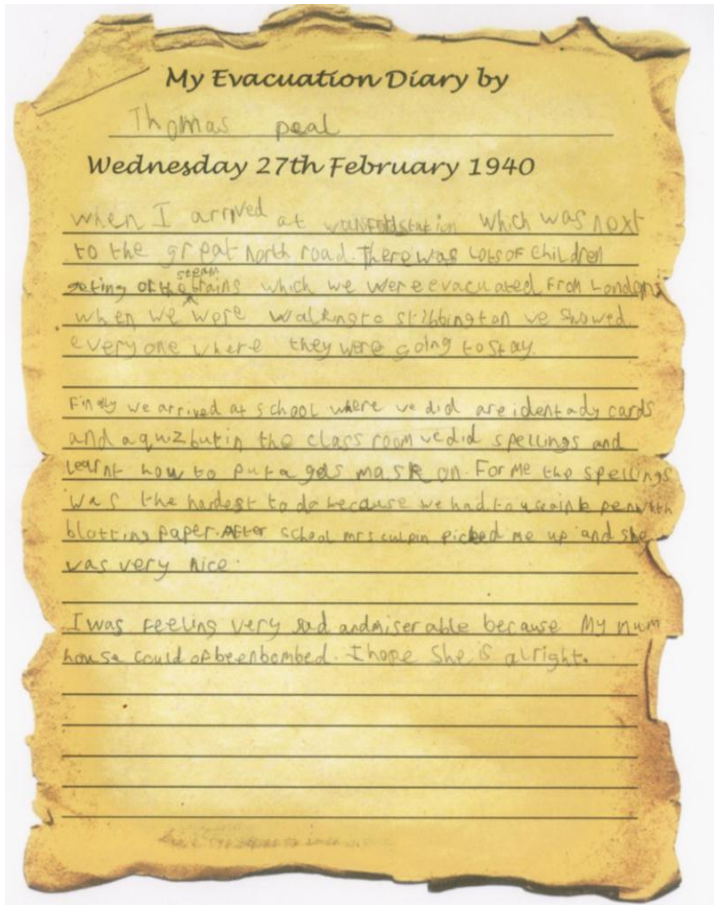 My Evacuation Diary by
Thomas peal
Wednesday 27th February 1940
when I arrived at station which was next
to the great North road. There was lots of children
steam
geting of the trains which we were evacuated From London
when we were walking to stibbington we showed
everyone where they were going to stay.
Finaly we arrived at school where we did are identady cards
and a quiz but in the class room we did spellings and
learnt how to put a gas mask on. For me the spellings
was the hardest to do because we had to use ink pen with
blotting paper. After school mrs culpin picked me up and she
was very nice.
I was feeling very sad and miserable because My mum
house could of been bombed. I hope she is alright.